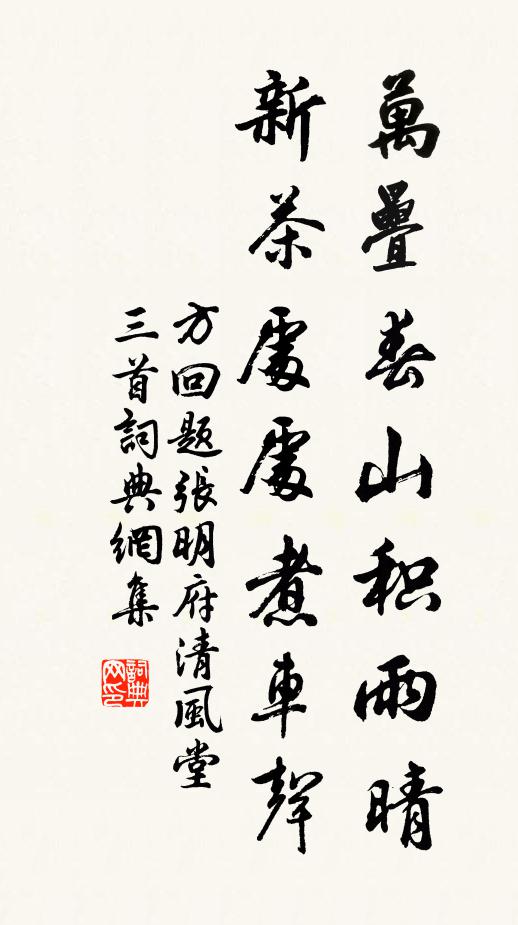 萬疊春山积雨晴
新茶處處煮車聲
方回題張明府清風堂
三首詞典網集
詞典网印